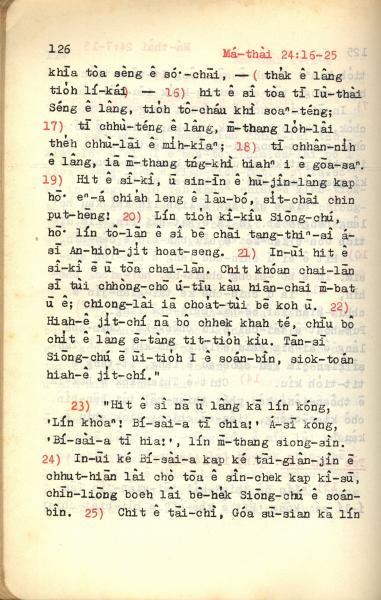 126 Má-thài 24:16-25
khīa tòa sèng ê só·-chāi, — ( tha̍k ê lâng
tio̍h lí-kái) — 16) hit ê sî tòa tī Iû-thài
Séng ê lâng, tio̍h tô-cháu khì soaⁿ-téng;
17) tī chhù-téng ê lâng, m̄-thang lo̍h-lâi
the̍h chhù-lāi ê mi̍h-kiaⁿ; 18) tī chhân-ni̍h
ê lâng, iā m̄-thang tńg-khì hiah i ê gōa-saⁿ.
19) Hit ê sî-kî, ū sin-īn ê hū-jîn-lâng kap
hō· eⁿ-á chia̍h leng ê lāu-bó, si̍t-chāi chin
put-hēng! 20) Lín tio̍h kî-kiû Siōng-chú,
hō· lín tô-lān ê sî bē chāi tang-thiⁿ-sî á-
sī An-hioh-ji̍t hoat-seng. 21) In-ūi hit ê
sî-kî ē ū tōa chai-lān. Chit khoán chai-lān
sī tùi chhòng-chō ú-tīu kàu hiān-chāi m̄-bat
ū ê; chiong-lâi iā choa̍t-tùi bē koh ū. 22)
Hiah-ê ji̍t-chí nā bô chhek khah té, chīu bô
chi̍t ê lâng ē-tàng tit-tio̍h kìu. Tān-sī
Siōng-chú ē ūi-tio̍h I ê soán-bîn, siok-toán
hiah-ê ji̍t-chí."
23) "Hit ê sî nā ū lâng kā lín kóng,
'Lín khòaⁿ! Bí-sài-a tī chia!' Á-sī kóng,
'Bí-sài-a tī hia!', lín m̄-thang siong-sìn.
24) In-ūi ké Bí-sài-a kap ké tāi-giân-jîn ē
chhut-hiān lâi chò tōa ê sîn-chek kap kî-sū,
chīn-liōng boeh lâi bê-he̍k Siōng-chú ê soán-
bîn. 25) Chit ê tāi-chì, Góa sū-sian kā lín